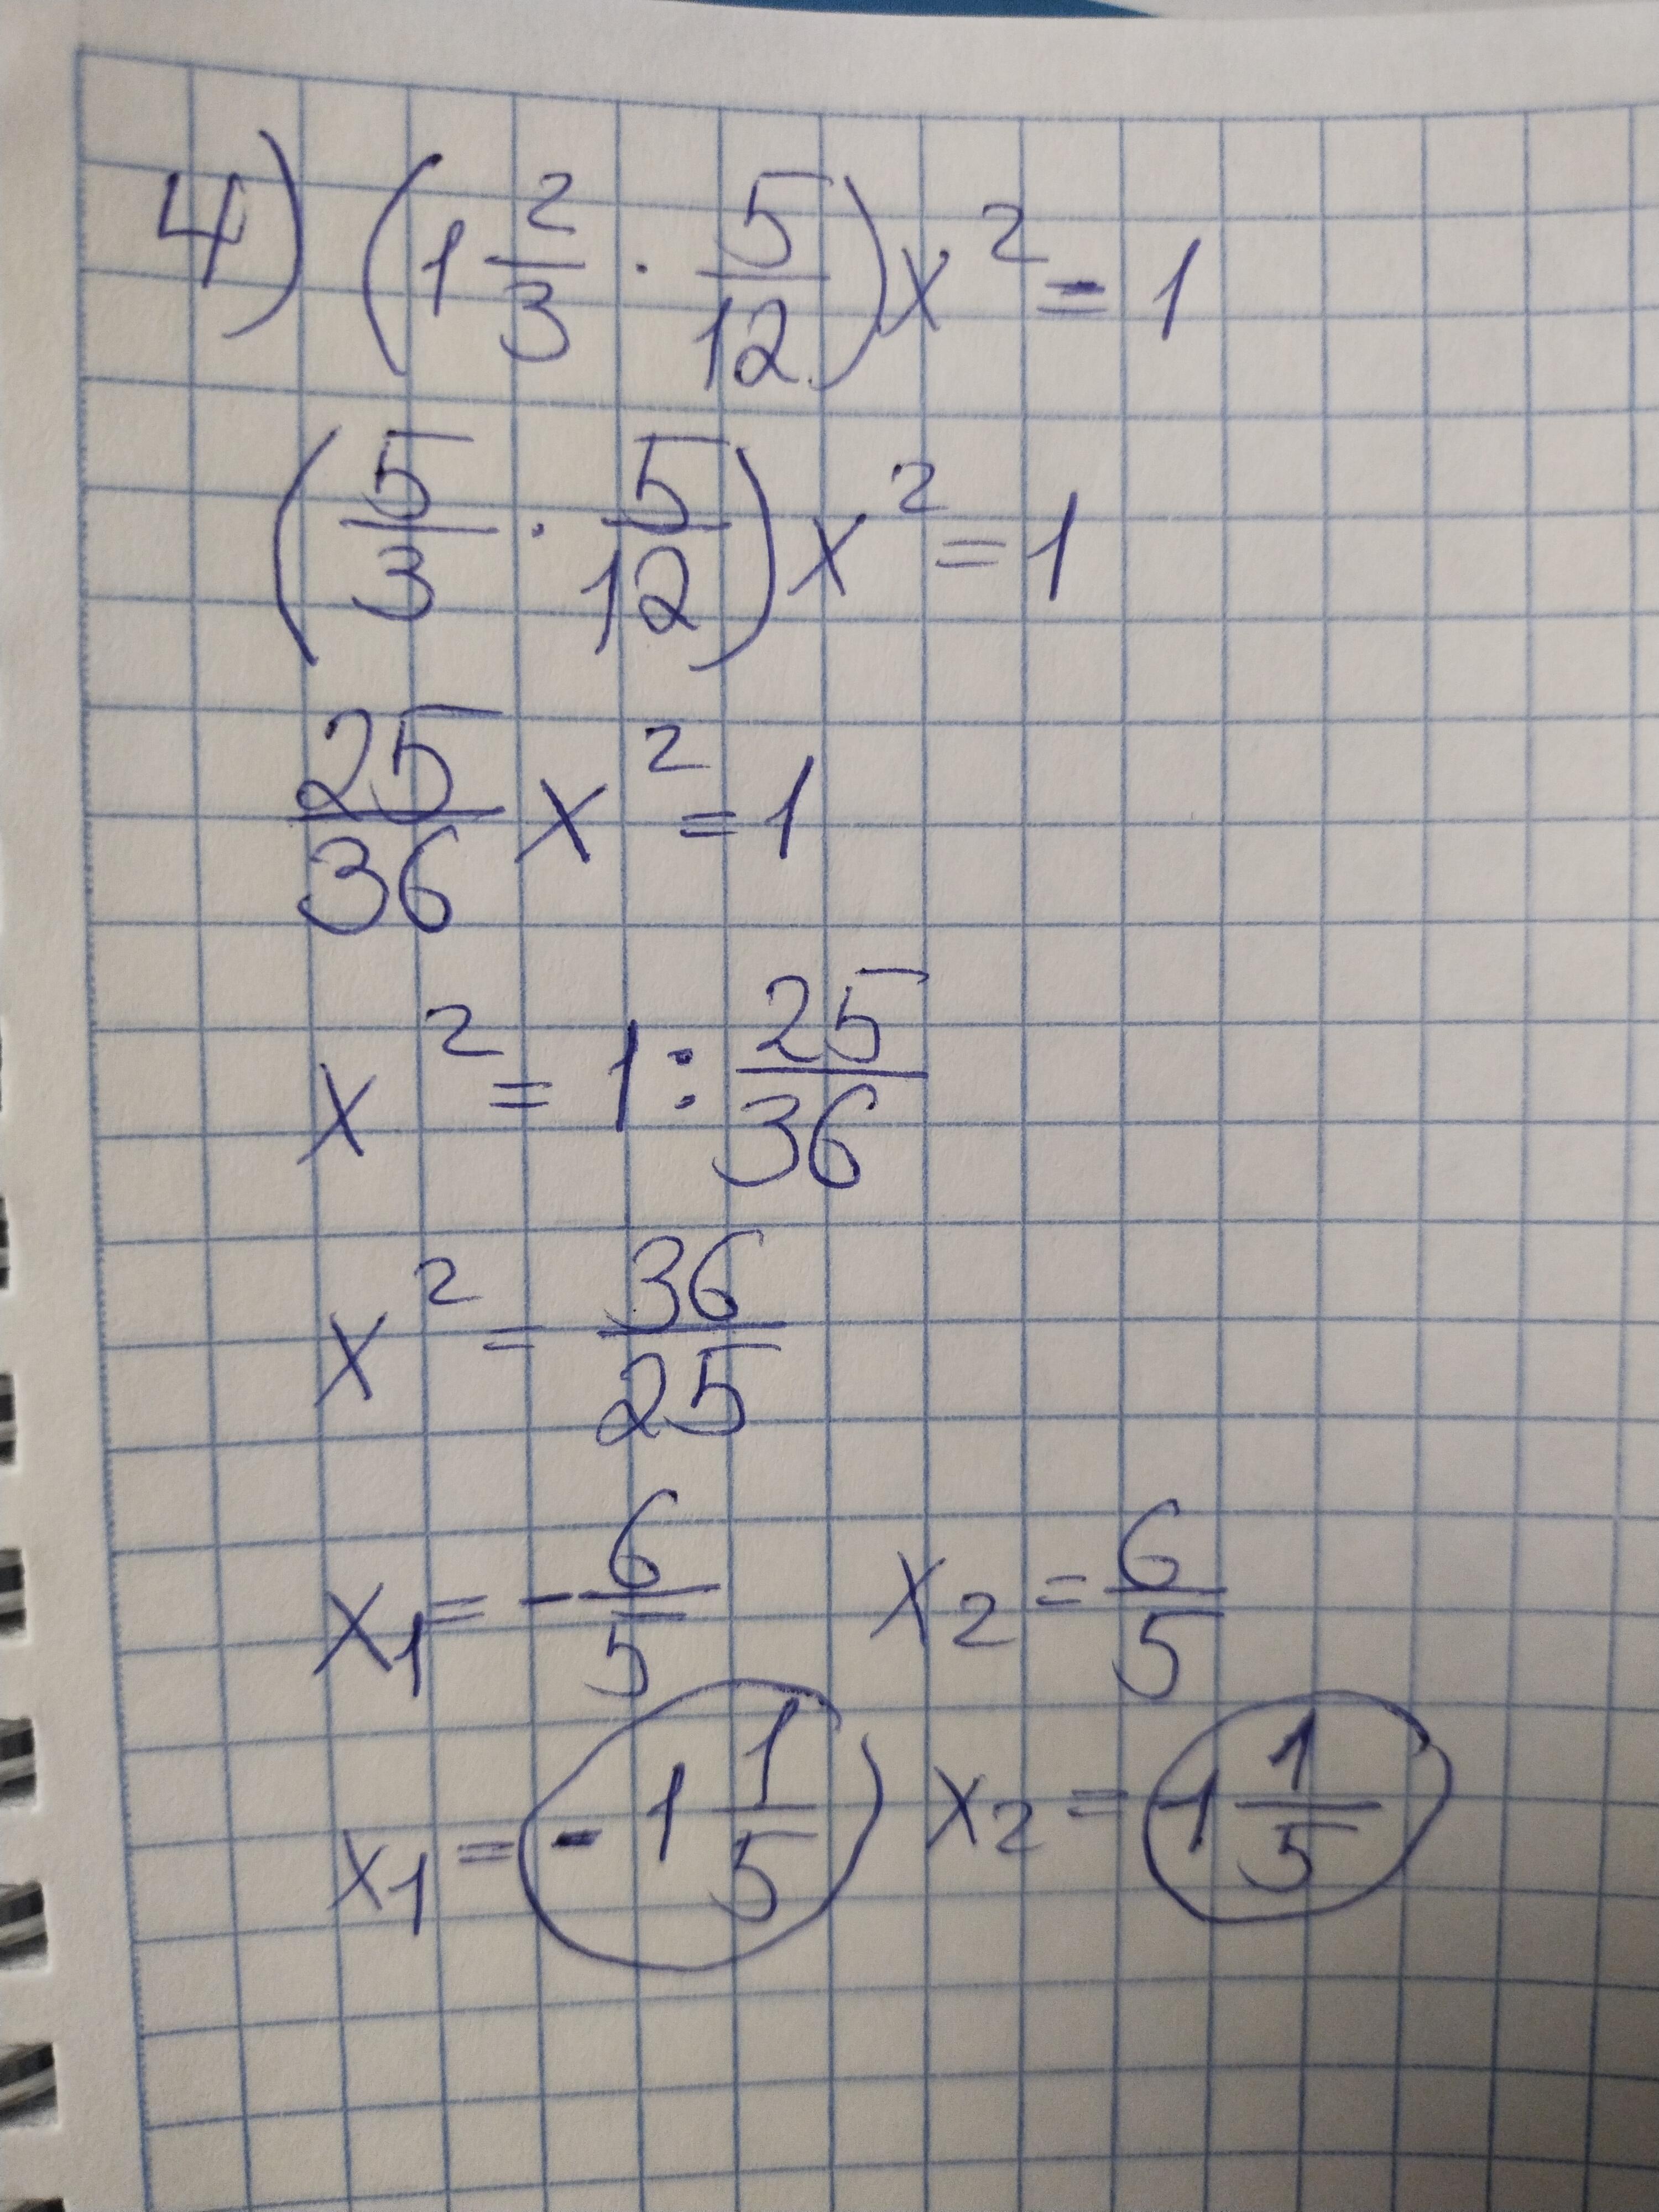 4) (1 2/3 · 5/12) x² = 1
(5/3 · 5/12) x² = 1
25/36 x² = 1
x² = 1 : 25/36
x² = 36/25
x₁ = - 6/5 x₂ = 6/5
x₁ = - 1 1/5 x₂ = 1 1/5